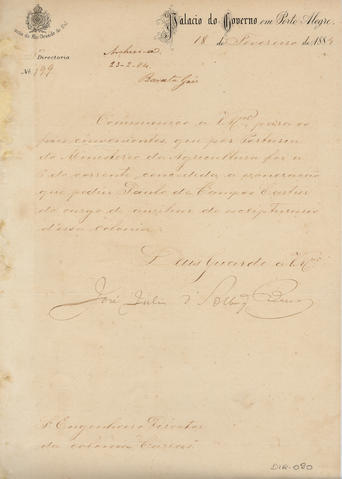 Palacio do Governo em Porto Alegre,
18 de Fevereiro de 1884
Directoria
Nº 199
Archive-se
23-2-84.
Barata Góis
Communico a Vmcê para os
fins convenientes, que por Portaria
do Ministerio da Agricultura foi a
5 do corrente concedida a exoneração
que pediu Paulo de Campos Cartier
do cargo de auxiliar de escripturario
d'essa colonia.
Deus Guarde a Vmcê
José Julio d'
Sr. Engenheiro Director
da colonia Caxias
DIR-080